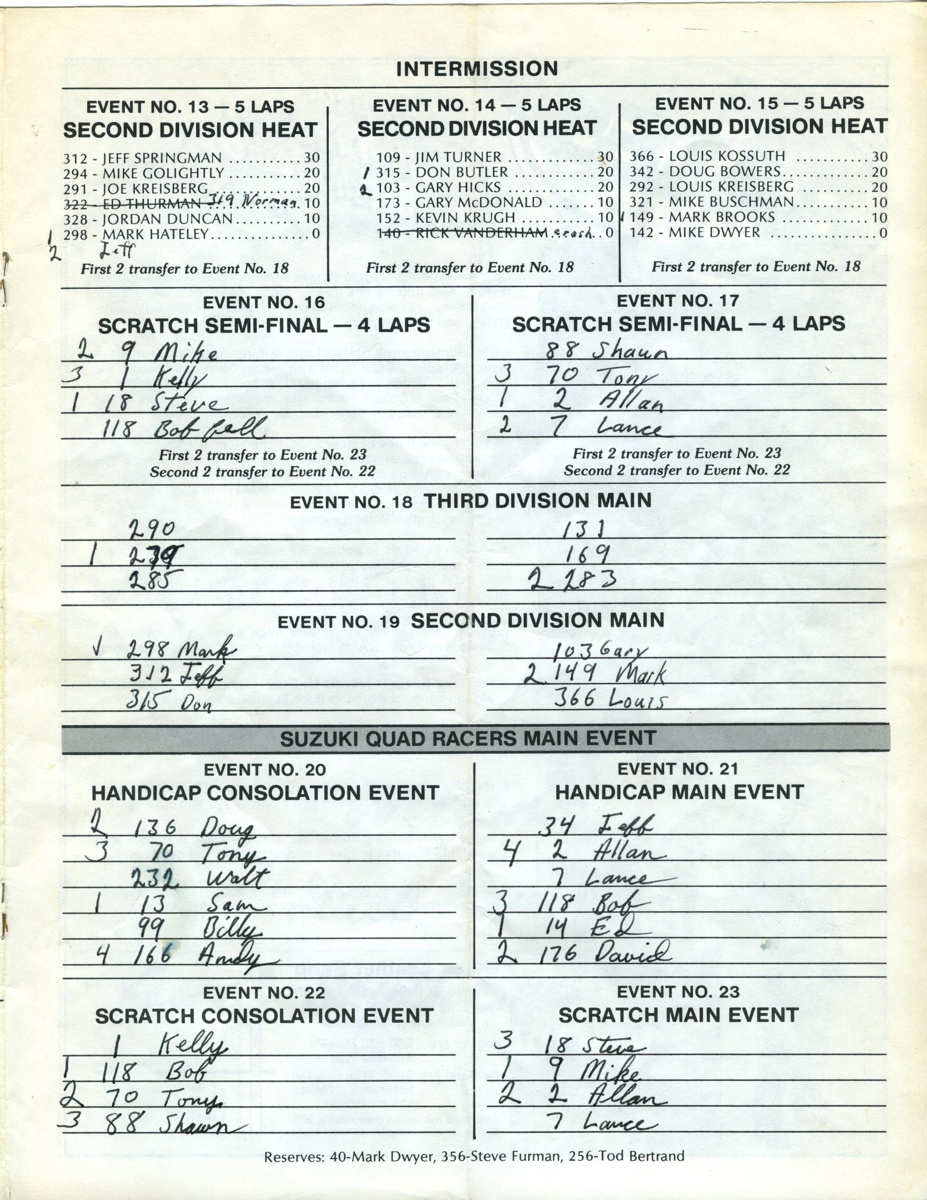 INTERMISSION
EVENT NO. 13 — 5 LAPS
SECOND DIVISION HEAT
312 - JEFF SPRINGMAN ..........30
294 - MIKE GOLIGHTLY ..........20
291 - JOE KREISBERG ..........20
322 - ED THURMAN 319 Norman. 10
328 - JORDAN DUNCAN ..........10
1 298 - MARK HATELEY ..........0
2 Jeff
First 2 transfer to Event No. 18
EVENT NO. 14 — 5 LAPS
SECOND DIVISION HEAT
109 - JIM TURNER ..........30
1 315 - DON BUTLER ..........20
2 103 - GARY HICKS ..........20
173 - GARY McDONALD ..........10
152 - KEVIN KRUGH ..........10
140 - RICK VANDERHAM crash. .0
First 2 transfer to Event No. 18
EVENT NO. 15 — 5 LAPS
SECOND DIVISION HEAT
366 - LOUIS KOSSUTH ..........30
342 - DOUG BOWERS ..........20
292 - LOUIS KREISBERG ..........20
321 - MIKE BUSCHMAN ..........10
1 149 - MARK BROOKS ..........10
142 - MIKE DWYER ..........0
First 2 transfer to Event No. 18
EVENT NO. 16
SCRATCH SEMI-FINAL — 4 LAPS
2 9 Mike
3 1 Kelly
1 18 Steve
118 Bob fell
First 2 transfer to Event No. 23
Second 2 transfer to Event No. 22
EVENT NO. 17
SCRATCH SEMI-FINAL — 4 LAPS
88 Shawn
3 70 Tony
1 2 Allan
2 7 Lance
First 2 transfer to Event No. 23
Second 2 transfer to Event No. 22
EVENT NO. 18 THIRD DIVISION MAIN
290
1 239
285
131
169
2 283
EVENT NO. 19 SECOND DIVISION MAIN
1 298 Mark
312 Jeff
315 Don
103 Gary
2 149 Mark
366 Louis
SUZUKI QUAD RACERS MAIN EVENT
EVENT NO. 20
HANDICAP CONSOLATION EVENT
2 136 Doug
3 70 Tony
232 Walt
1 13 Sam
99 Billy
4 166 Andy
EVENT NO. 21
HANDICAP MAIN EVENT
34 Jeff
4 2 Allan
7 Lance
3 118 Bob
1 14 Ed
2 176 David
EVENT NO. 22
SCRATCH CONSOLATION EVENT
1 Kelly
1 118 Bob
2 70 Tony
3 88 Shawn
EVENT NO. 23
SCRATCH MAIN EVENT
3 18 Steve
1 9 Mike
2 2 Allan
7 Lance
Reserves: 40-Mark Dwyer, 356-Steve Furman, 256-Tod Bertrand